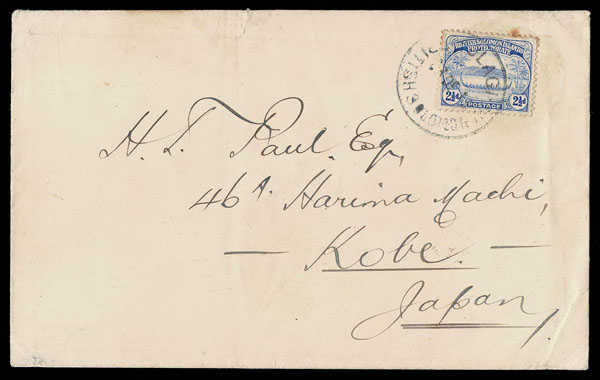 BRITISH SOLOMON ISLANDS
PROTECTORATE
2½d POSTAGE 2½d
H. T. Paul. Esq,
46A. Harima Machi,
— Kobe. —
Japan,